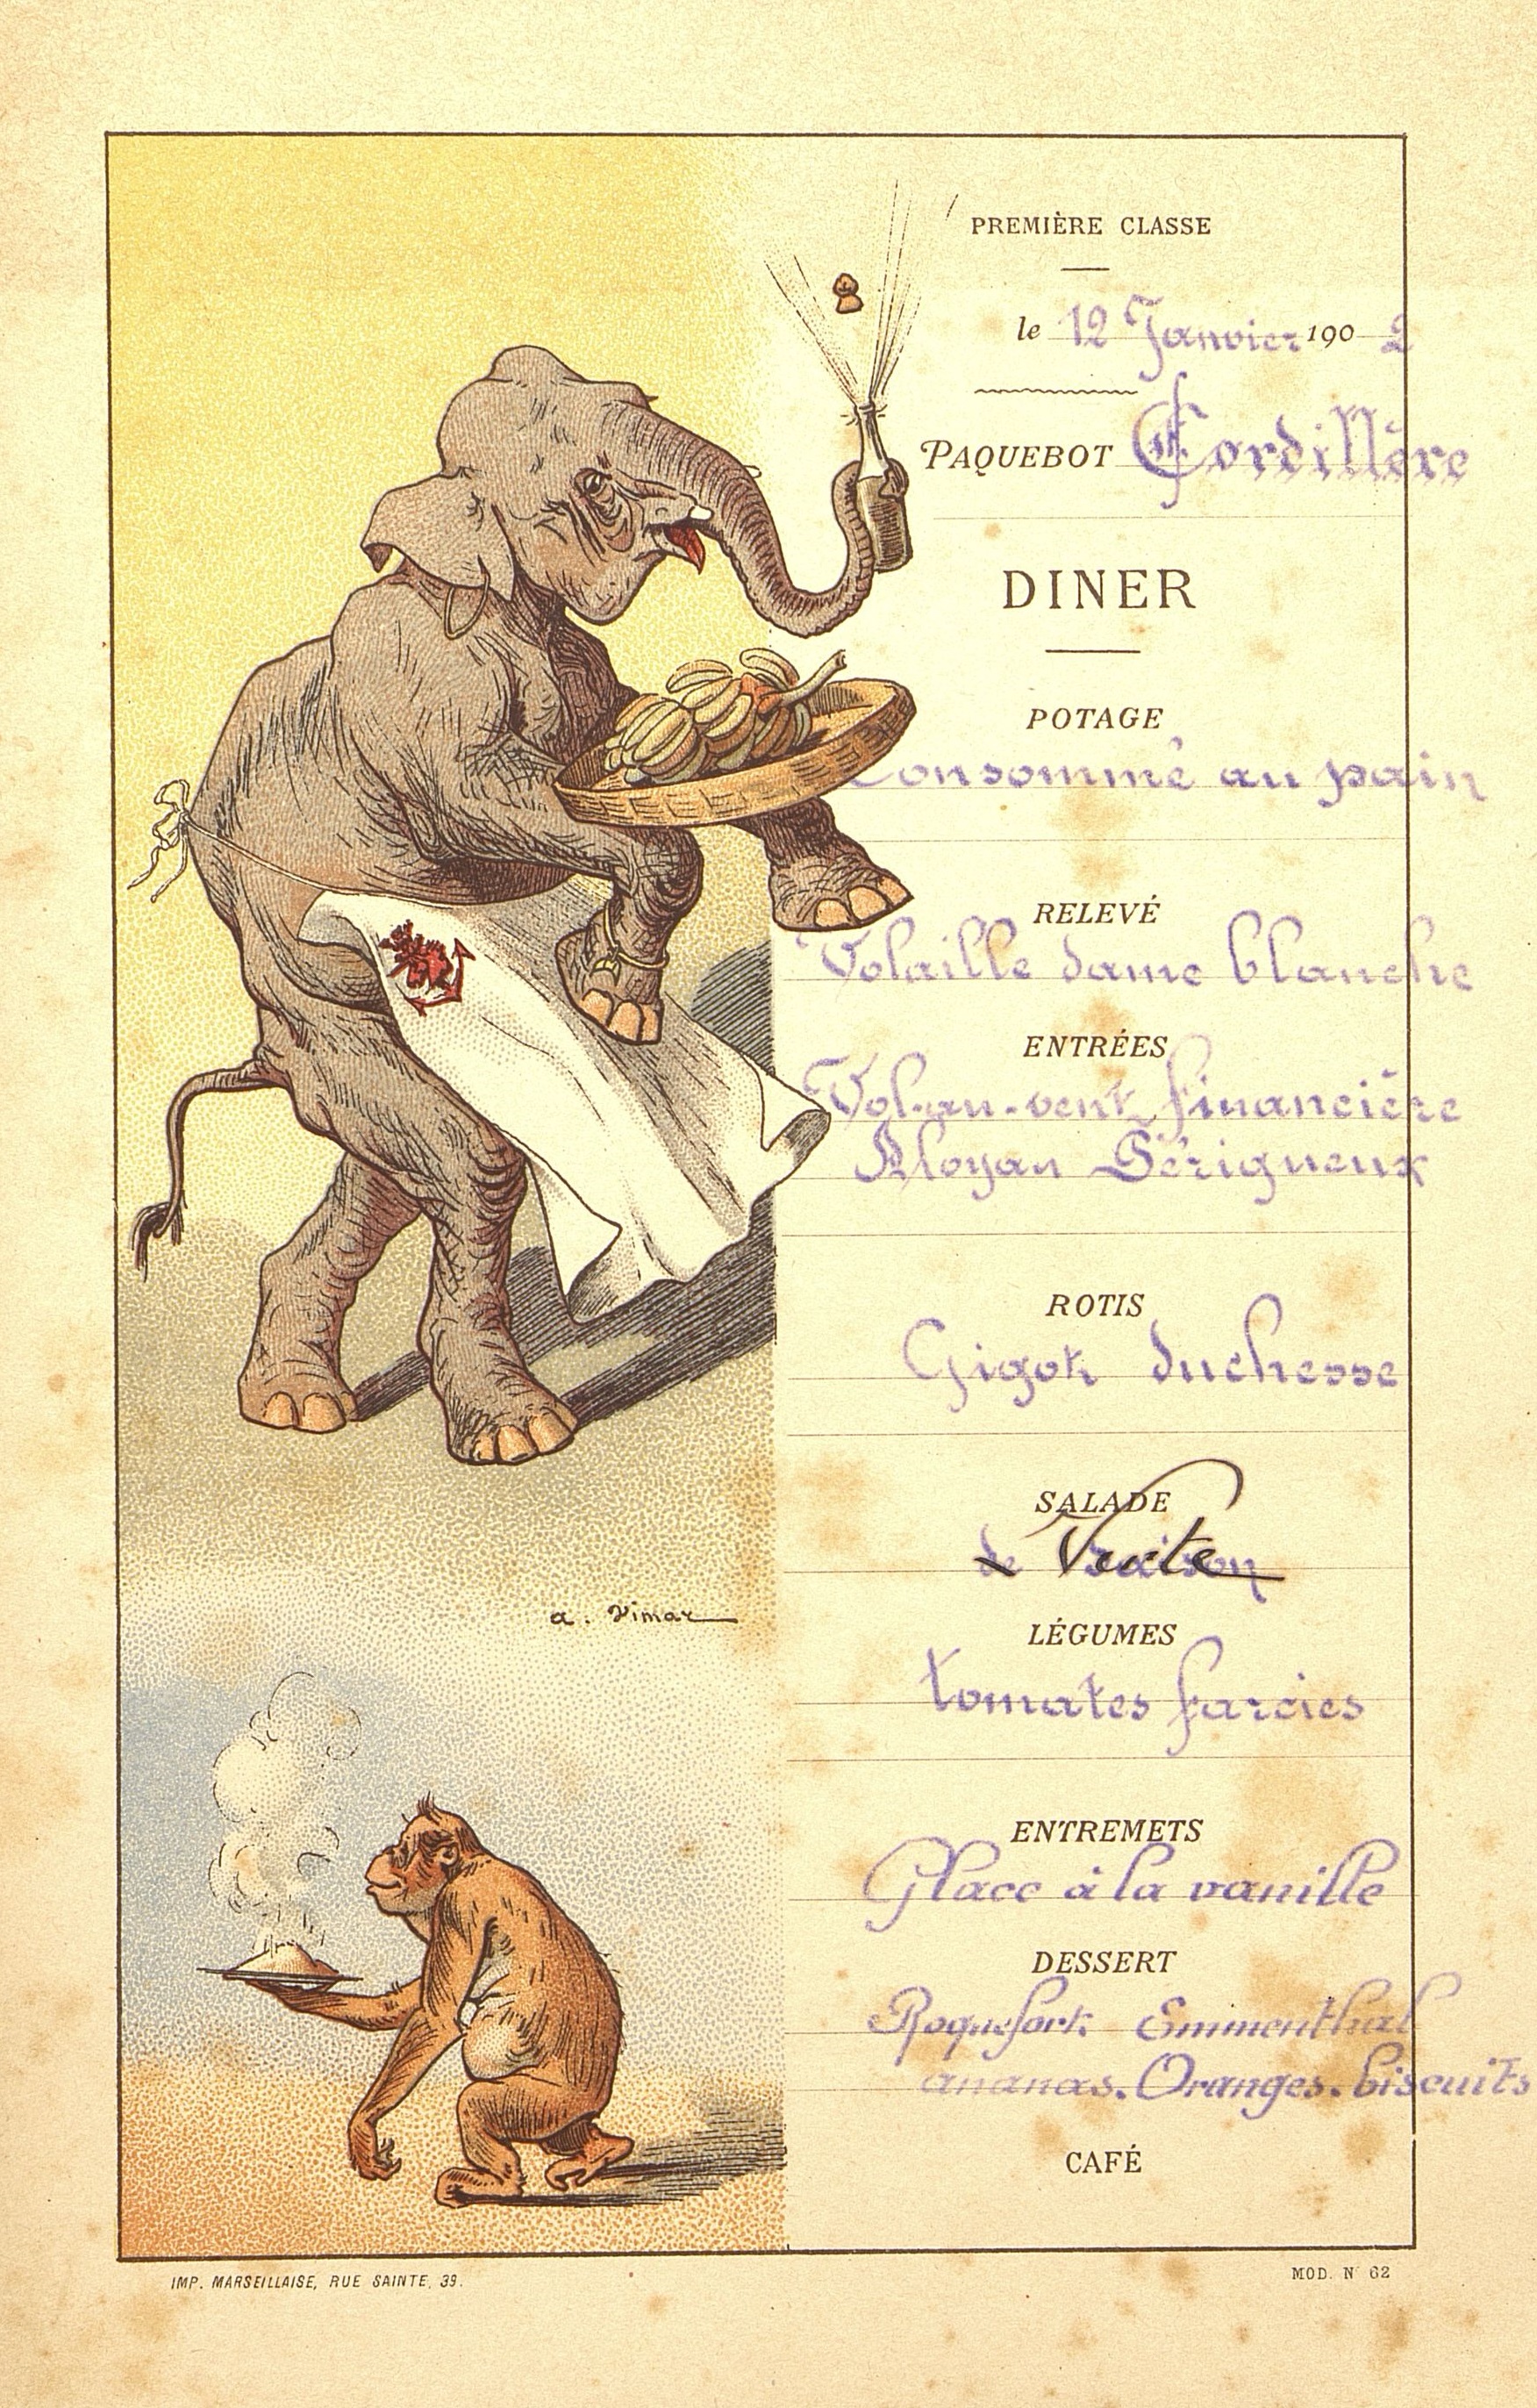 PREMIÈRE CLASSE
le 12 Janvier 1902
PAQUEBOT Cordillère
DINER
POTAGE
Consommé au pain
RELEVÉ
Volaille dame blanche
ENTRÉES
Vol-au-vent financière
Aloyau Périgueux
ROTIS
Gigot duchesse
SALADE
de saison Verte
LÉGUMES
tomates farcies
a. Vimar
ENTREMETS
Glace à la vanille
DESSERT
Roquefort Emmenthal
ananas. Oranges. biscuits
CAFÉ
IMP. MARSEILLAISE, RUE SAINTE, 39.
MOD. N° 62